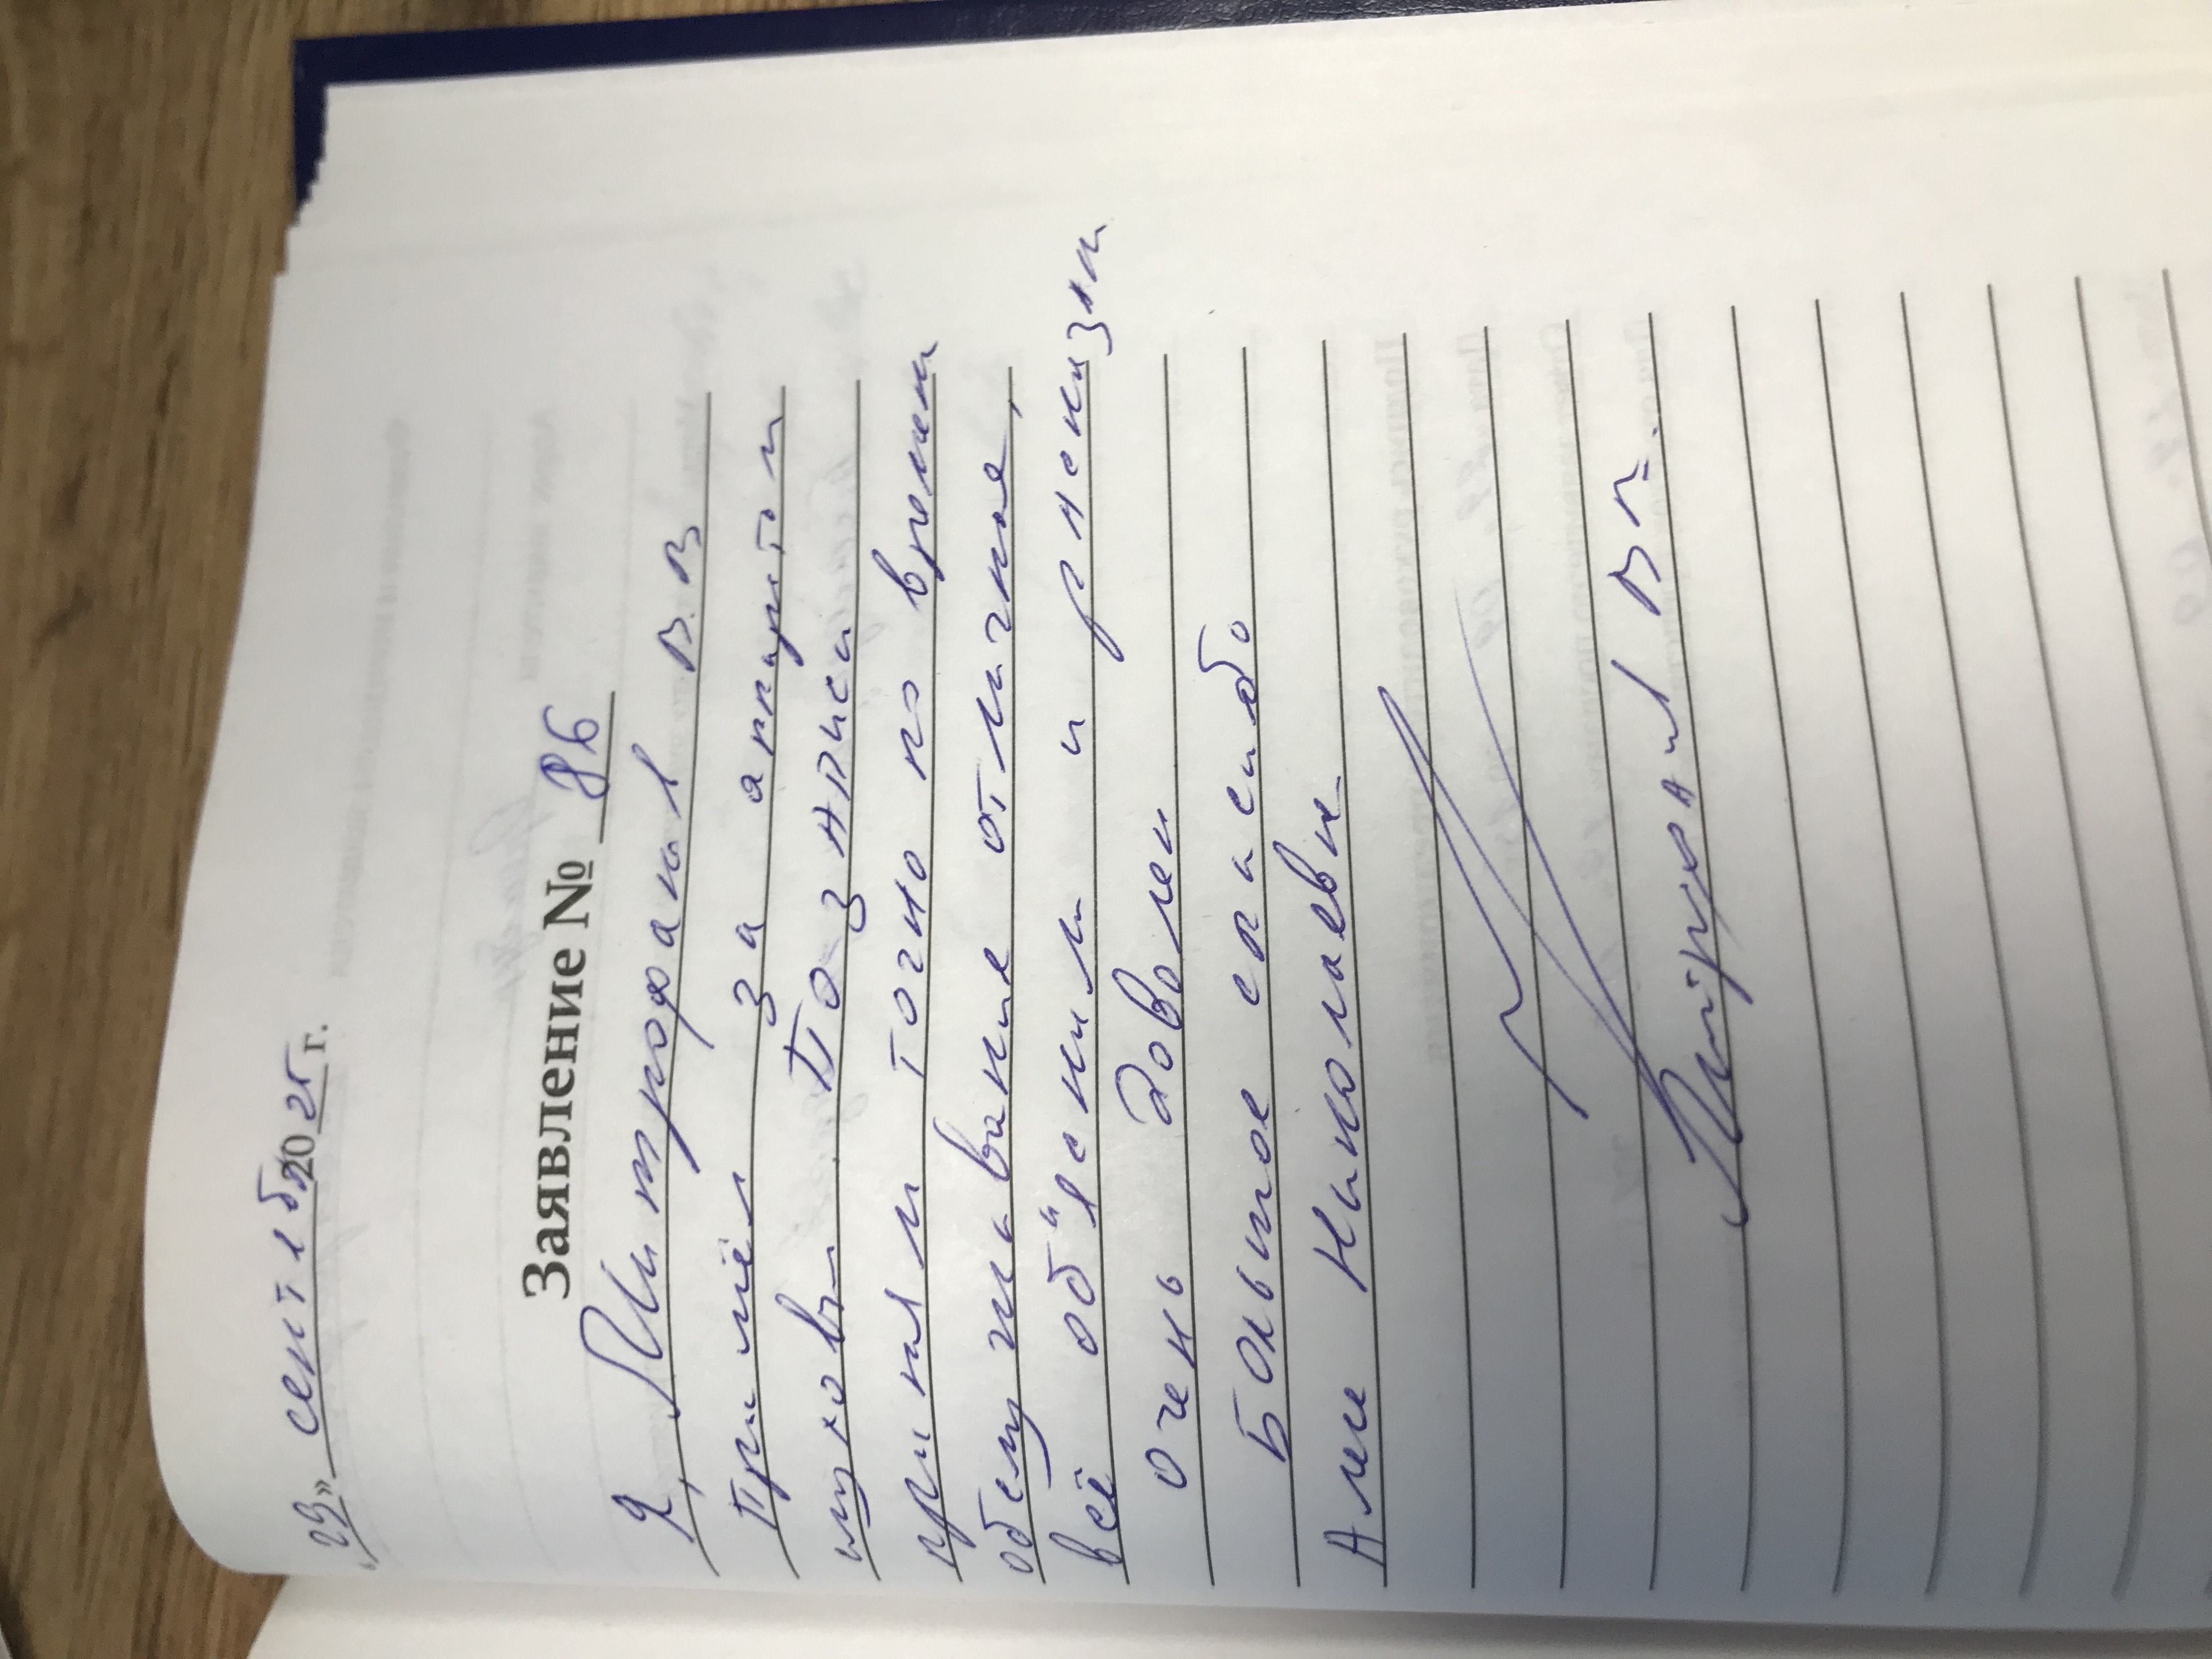 «23» сентяб 2025 г.
Заявление № 86
Я, Митрофанов В. В
Пришёл за аппаратом
слуховым По записи
приняли точно по времени
обслуживание отличное,
всё объяснили и
очень доволен
Большое спасибо
Алле Николаевне
Митрофанов В